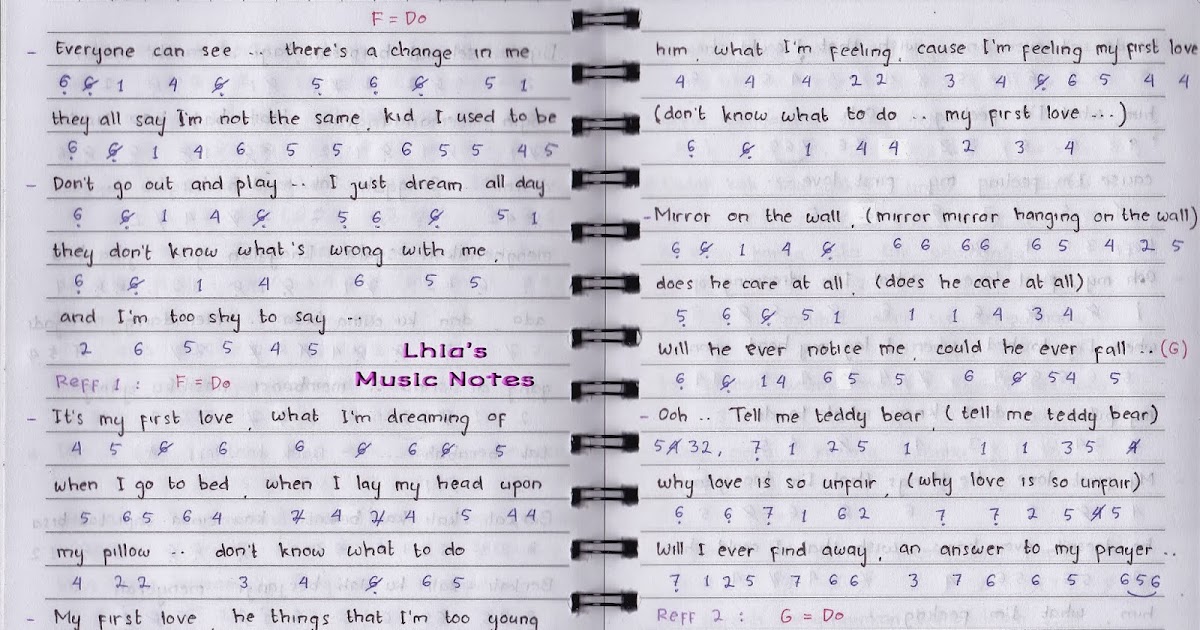 F = Do
- Everyone can see .. there's a change in me
6̣ 6̸̣ 1 4 6̸̣ 5̣ 6̣ 6̸̣ 5 1
they all say I'm not the same, kid I used to be
6̣ 6̸̣ 1 4 6 5 5 6 5 5 4 5
- Don't go out and play .. I just dream all day
6̣ 6̸̣ 1 4 6̸̣ 5̣ 6̣ 6̸̣ 5 1
they don't know what's wrong with me,
6̣ 6̸̣ 1 4 6 5 5
and I'm too shy to say ...
2 6 5 5 4 5
Lhia's
Music Notes
Reff 1 : F = Do
- It's my first love, what I'm dreaming of
4 5 6̸ 6 6 6̸ 6 6̸ 5
when I go to bed, when I lay my head upon
5 6 5 6 4 2̸ 4 2̸ 4 5 4 4
my pillow .. don't know what to do
4 2 2 3 4 6̸ 6 5
- My first love, he things that I'm too young
him, what I'm feeling, cause I'm feeling my first love
4 4 4 2 2 3 4 6̸ 6 5 4 4
(don't know what to do .. my first love ...)
6̣ 6̸̣ 1 4 4 2 3 4
- Mirror on the wall, (mirror mirror hanging on the wall)
6̣ 6̸̣ 1 4 6̸̣ 6 6 6 6 6 5 4 2 5
does he care at all, (does he care at all)
5̣ 6̣ 6̸̣ 5 1 1 1 4 3 4
will he ever notice me, could he ever fall .. (G)
6̣ 6̸̣ 1 4 6 5 5 6 6̸ 5 4 5
- Ooh .. Tell me teddy bear, (tell me teddy bear)
5 4̸ 3 2, 7̣ 1 2 5 1 1 1 3 5 4̸
why love is so unfair, (why love is so unfair)
6̣ 6̣ 7̣ 1 6 2 7̣ 7̣ 2 5 4̸ 5
Will I ever find away, an answer to my prayer ..
7̣ 1 2 5 7 6 6 3 7 6 6 5 6 5 6
Reff 2 : G = Do